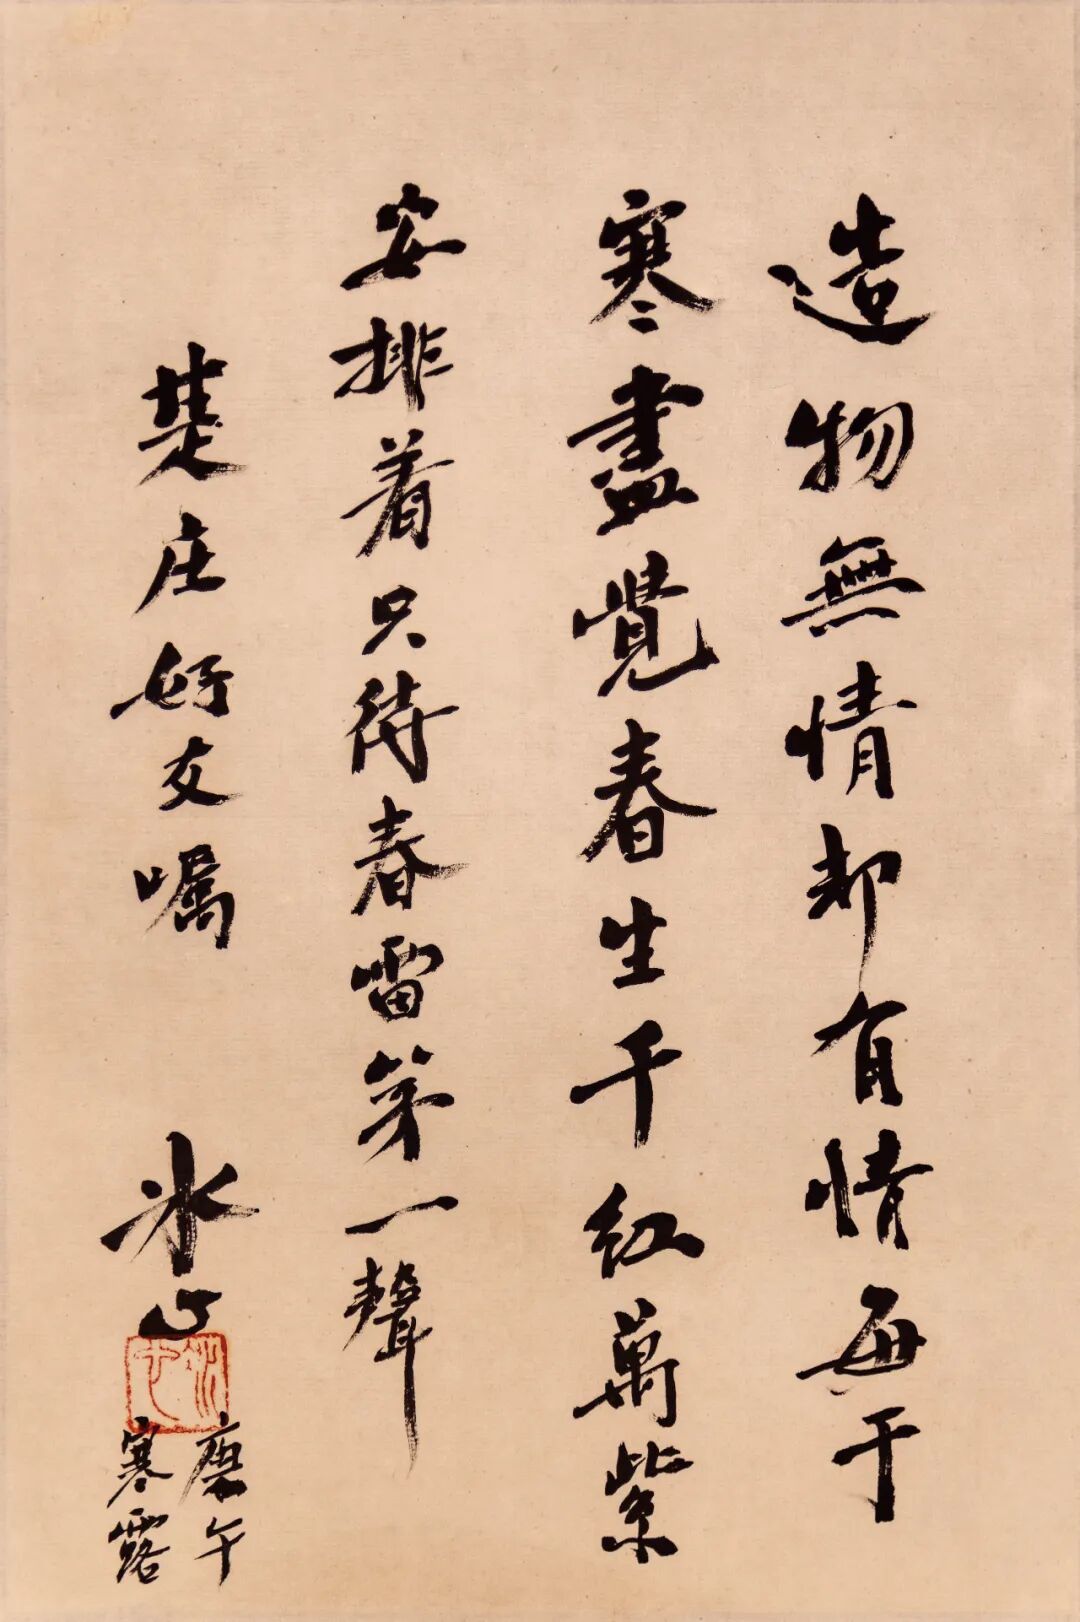 造物無情却有情每于
寒盡覺春生千紅萬紫
安排着只待春雷第一聲
楚庄好友嘱
冰心
庚午
寒露
冰心